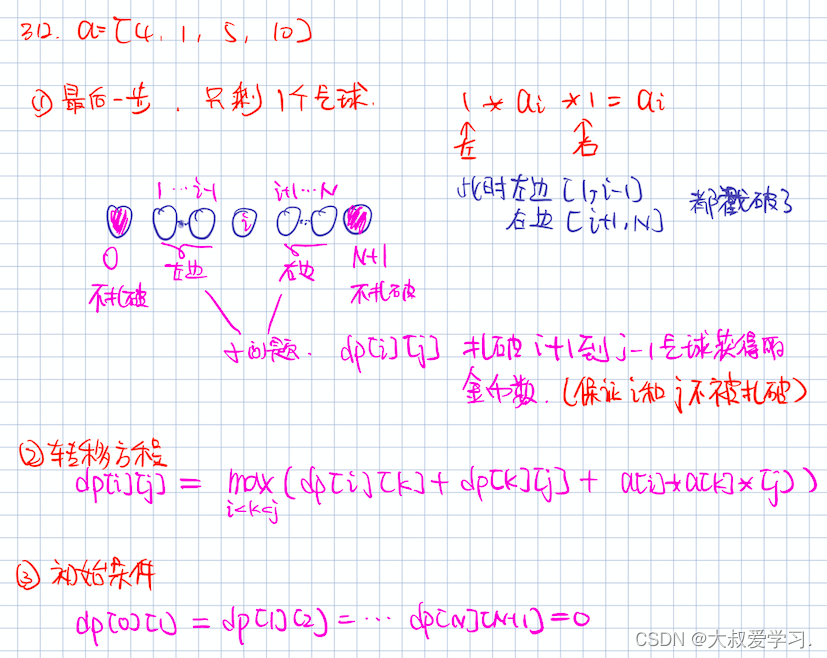 312. a=[4, 1, 5, 10]
① 最后一步, 只剩1个气球.
1 * ai * 1 = ai
左 右
此时左边 [1, i-1]
右边 [i+1, N] 都戳破了
1 … i-1 i+1 … N
i
0 左边 右边 N+1
不扎破 不扎破
子问题. dp[i][j] 扎破 i+1到 j-1气球获得的
金币数. (保证i和j不被扎破)
② 转移方程
dp[i][j] = max (dp[i][k] + dp[k][j] + a[i]*a[k]*[j])
i<k<j
③ 初始条件
dp[0][1] = dp[1][2] = … dp[N][N+1] = 0
CSDN @大叔爱学习.